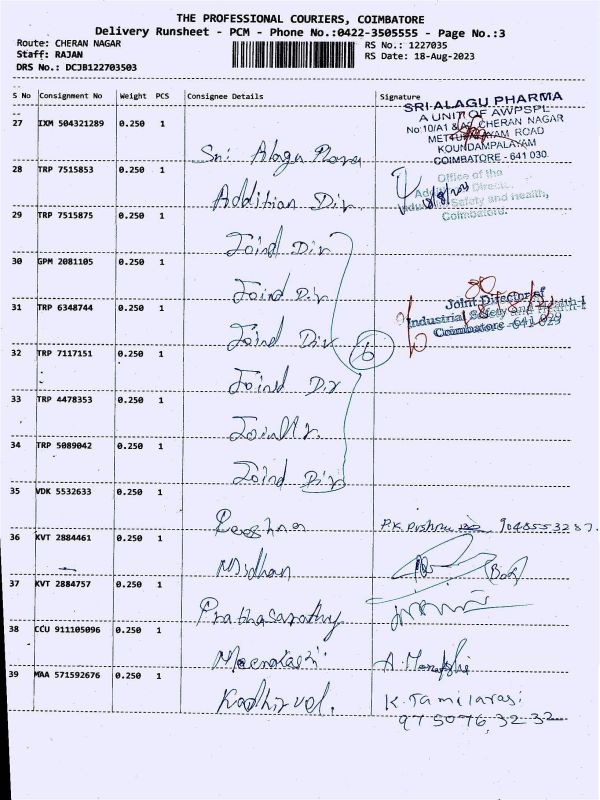 THE PROFESSIONAL COURIERS, COIMBATORE
Delivery Runsheet - PCM - Phone No.:0422-3505555 - Page No.:3
Route: CHERAN NAGAR
RS No.: 1227035
Staff: RAJAN
RS Date: 18-Aug-2023
DRS No.: DCJB122703503
S No Consignment No Weight PCS Consignee Details Signature
27 IXM 504321289 0.250 1
Sri Alagu Pharma
SRI ALAGU PHARMA
A UNIT OF AWPSPL
No:10/A1 & CHERAN NAGAR
ROAD
KOUNDAMPALAYAM
COIMBATORE - 641 030.
28 TRP 7515853 0.250 1
Addition Dir
Office of the
Safety and Health,
Coimbatore.
29 TRP 7515875 0.250 1
Joind Dir
30 GPM 2081105 0.250 1
Joind Dir
31 TRP 6348744 0.250 1
Joind Dir
6
Joint Director of
Industrial Safety and Health-I
Coimbatore -641 029
32 TRP 7117151 0.250 1
Joind Dir
33 TRP 4478353 1
34 TRP 5089042 0.250 1
Joind Dir
35 VDK 5532633 0.250 1
9048553287.
36 KVT 2884461 0.250 1
Midhan
37 KVT 2884757 0.250 1
Prabhasarathy
38 CCU 911105096 0.250 1
Meenakashi
39 MAA 571592676 0.250 1
Kadhirvel.
K. Tamilarasi
9750763232